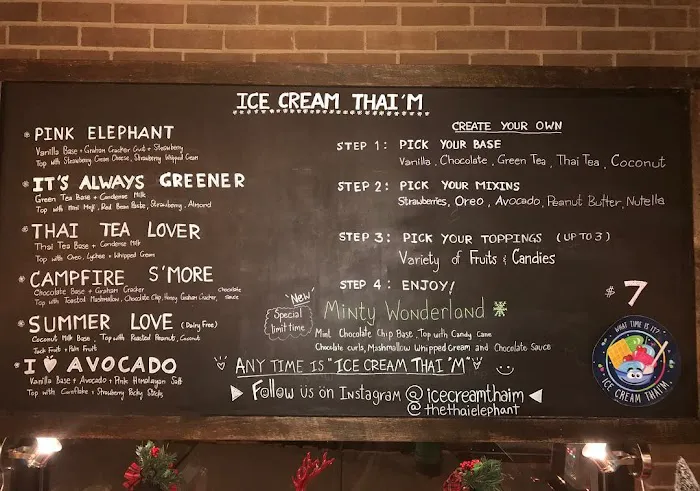 ICE CREAM THAI'M
* PINK ELEPHANT
Vanilla Base + Graham Cracker Crust + Strawberry
Top with Strawberry Cream Cheese, Strawberry Whipped Cream
* IT'S ALWAYS GREENER
Green Tea Base + Condense Milk
Top with Mini Moji, Red Bean Paste, Strawberry, Almond
* THAI TEA LOVER
Thai Tea Base + Condense Milk
Top with Oreo, Lychee + Whipped Cream
* CAMPFIRE S'MORE
Chocolate Base + Graham Cracker
Top with Toasted Mashmallow, Chocolate Chip, Honey Graham Cracker, Chocolate Sauce
* SUMMER LOVE (Dairy Free)
Coconut Milk Base, Top with Roasted Peanuts, Coconut
Jack Fruit + Palm Fruit
* I ♥ AVOCADO
Vanilla Base + Avocado + Pink Himalayan Salt
Top with Cornflake + Strawberry Pocky Sticks
CREATE YOUR OWN
STEP 1: PICK YOUR BASE
Vanilla, Chocolate, Green Tea, Thai Tea, Coconut
STEP 2: PICK YOUR MIXINS
Strawberries, Oreo, Avocado, Peanut Butter, Nutella
STEP 3: PICK YOUR TOPPINGS (UP TO 3)
Variety of Fruits & Candies
STEP 4: ENJOY!
"New"
Special limit time
Minty Wonderland
Mint Chocolate Chip Base Top with Candy Cane
Chocolate curls, Mashmallow Whipped Cream and Chocolate Sauce
$7
ANY TIME IS "ICE CREAM THAI'M"
Follow us on Instagram @icecreamthaim
@thethaielephant
WHAT TIME IS IT?
ICE CREAM THAI'M.